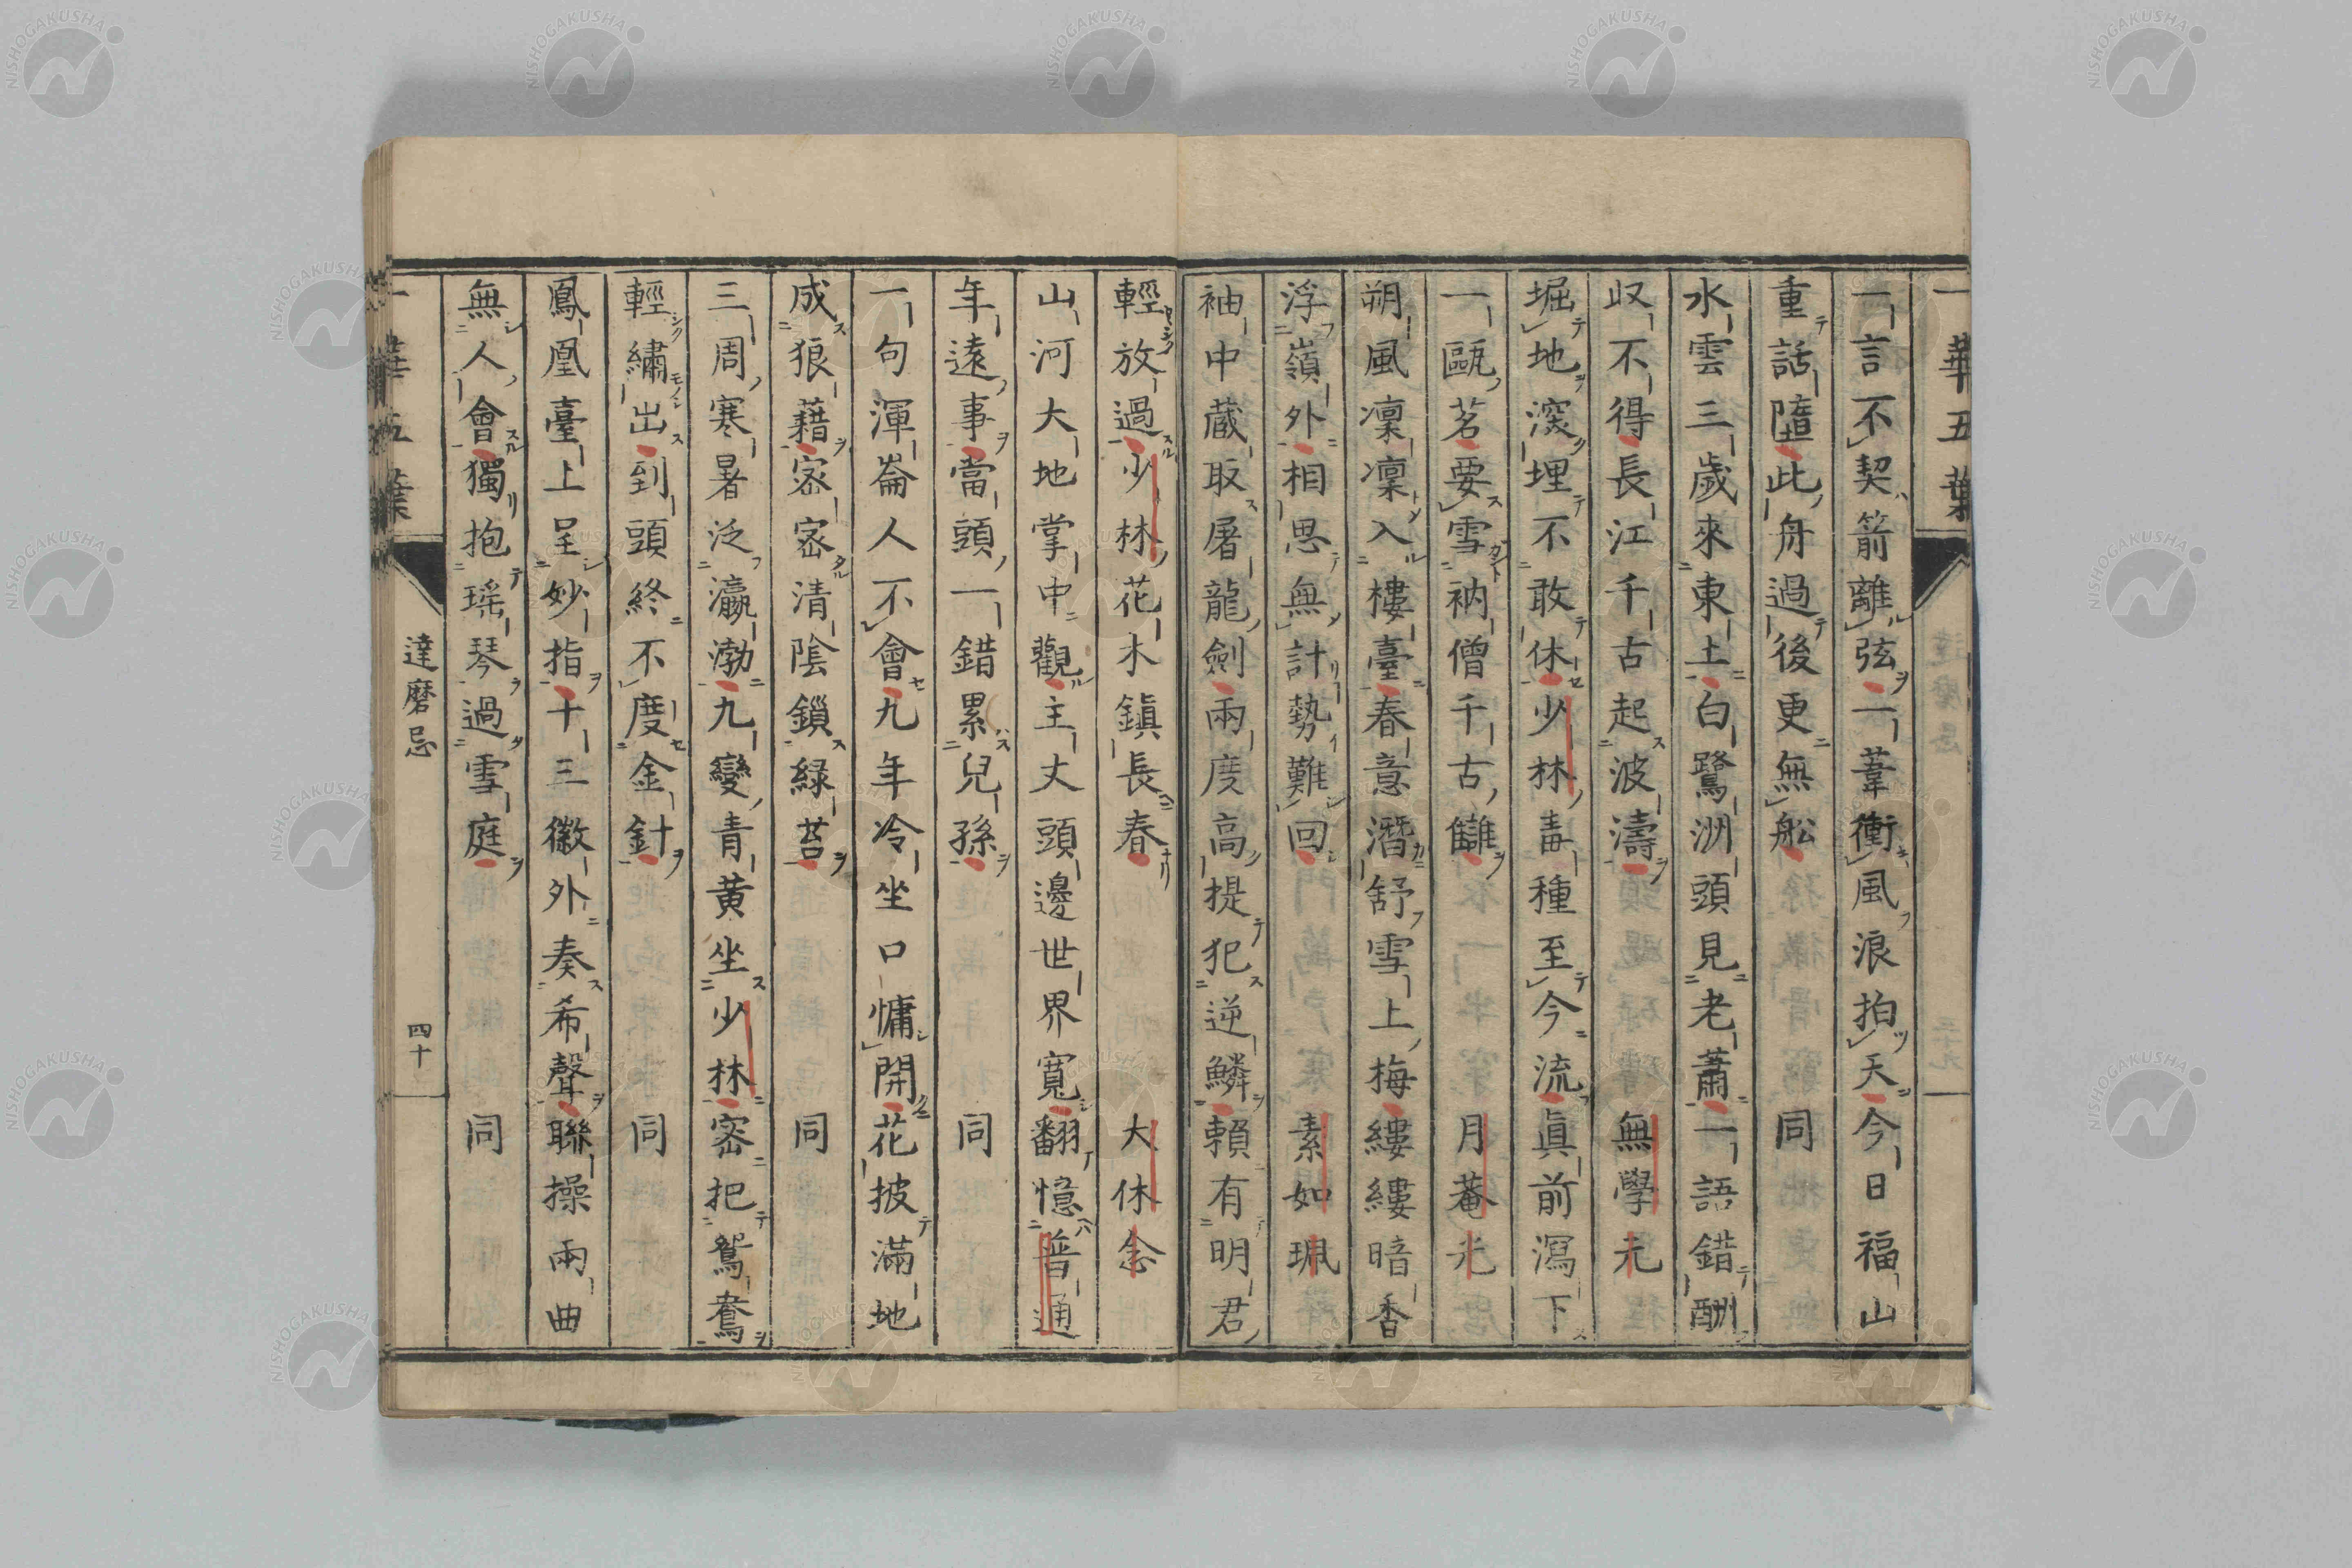 一華五葉
一言不契箭離弦一葦衝風浪拍天今日福山
重話墮此舟過後更無舩　同
水雲三歲來東土白鷺洲頭見老蕭一語錯酬
収不得長江千古起波濤　無學元
堀地深埋不敢休少林毒種至今流眞前瀉下
一甌茗要雪衲僧千古讎　月菴光
朔風凜凜入樓臺春意潛舒雪上梅縷縷暗香
浮嶺外相思無計勢難回　素如珮
袖中蔵取屠龍劍兩度高提犯逆鱗賴有明君
輕放過少林花木鎮長春　大休念
山河大地掌中觀主丈頭邊世界寬翻憶普通
年遠事當頭一錯累兒孫　同
一句渾崙人不會九年冷坐口慵開花披滿地
成狼藉密密清陰鎖綠苔　同
三周寒暑泛瀛渤九變青黃坐少林密把鴛鴦
輕繡出到頭終不度金針　同
鳳凰臺上呈妙指十三徽外奏希聲聯操兩曲
無人會獨抱瑶琴過雪庭　同
一華五葉　達磨忌　四十